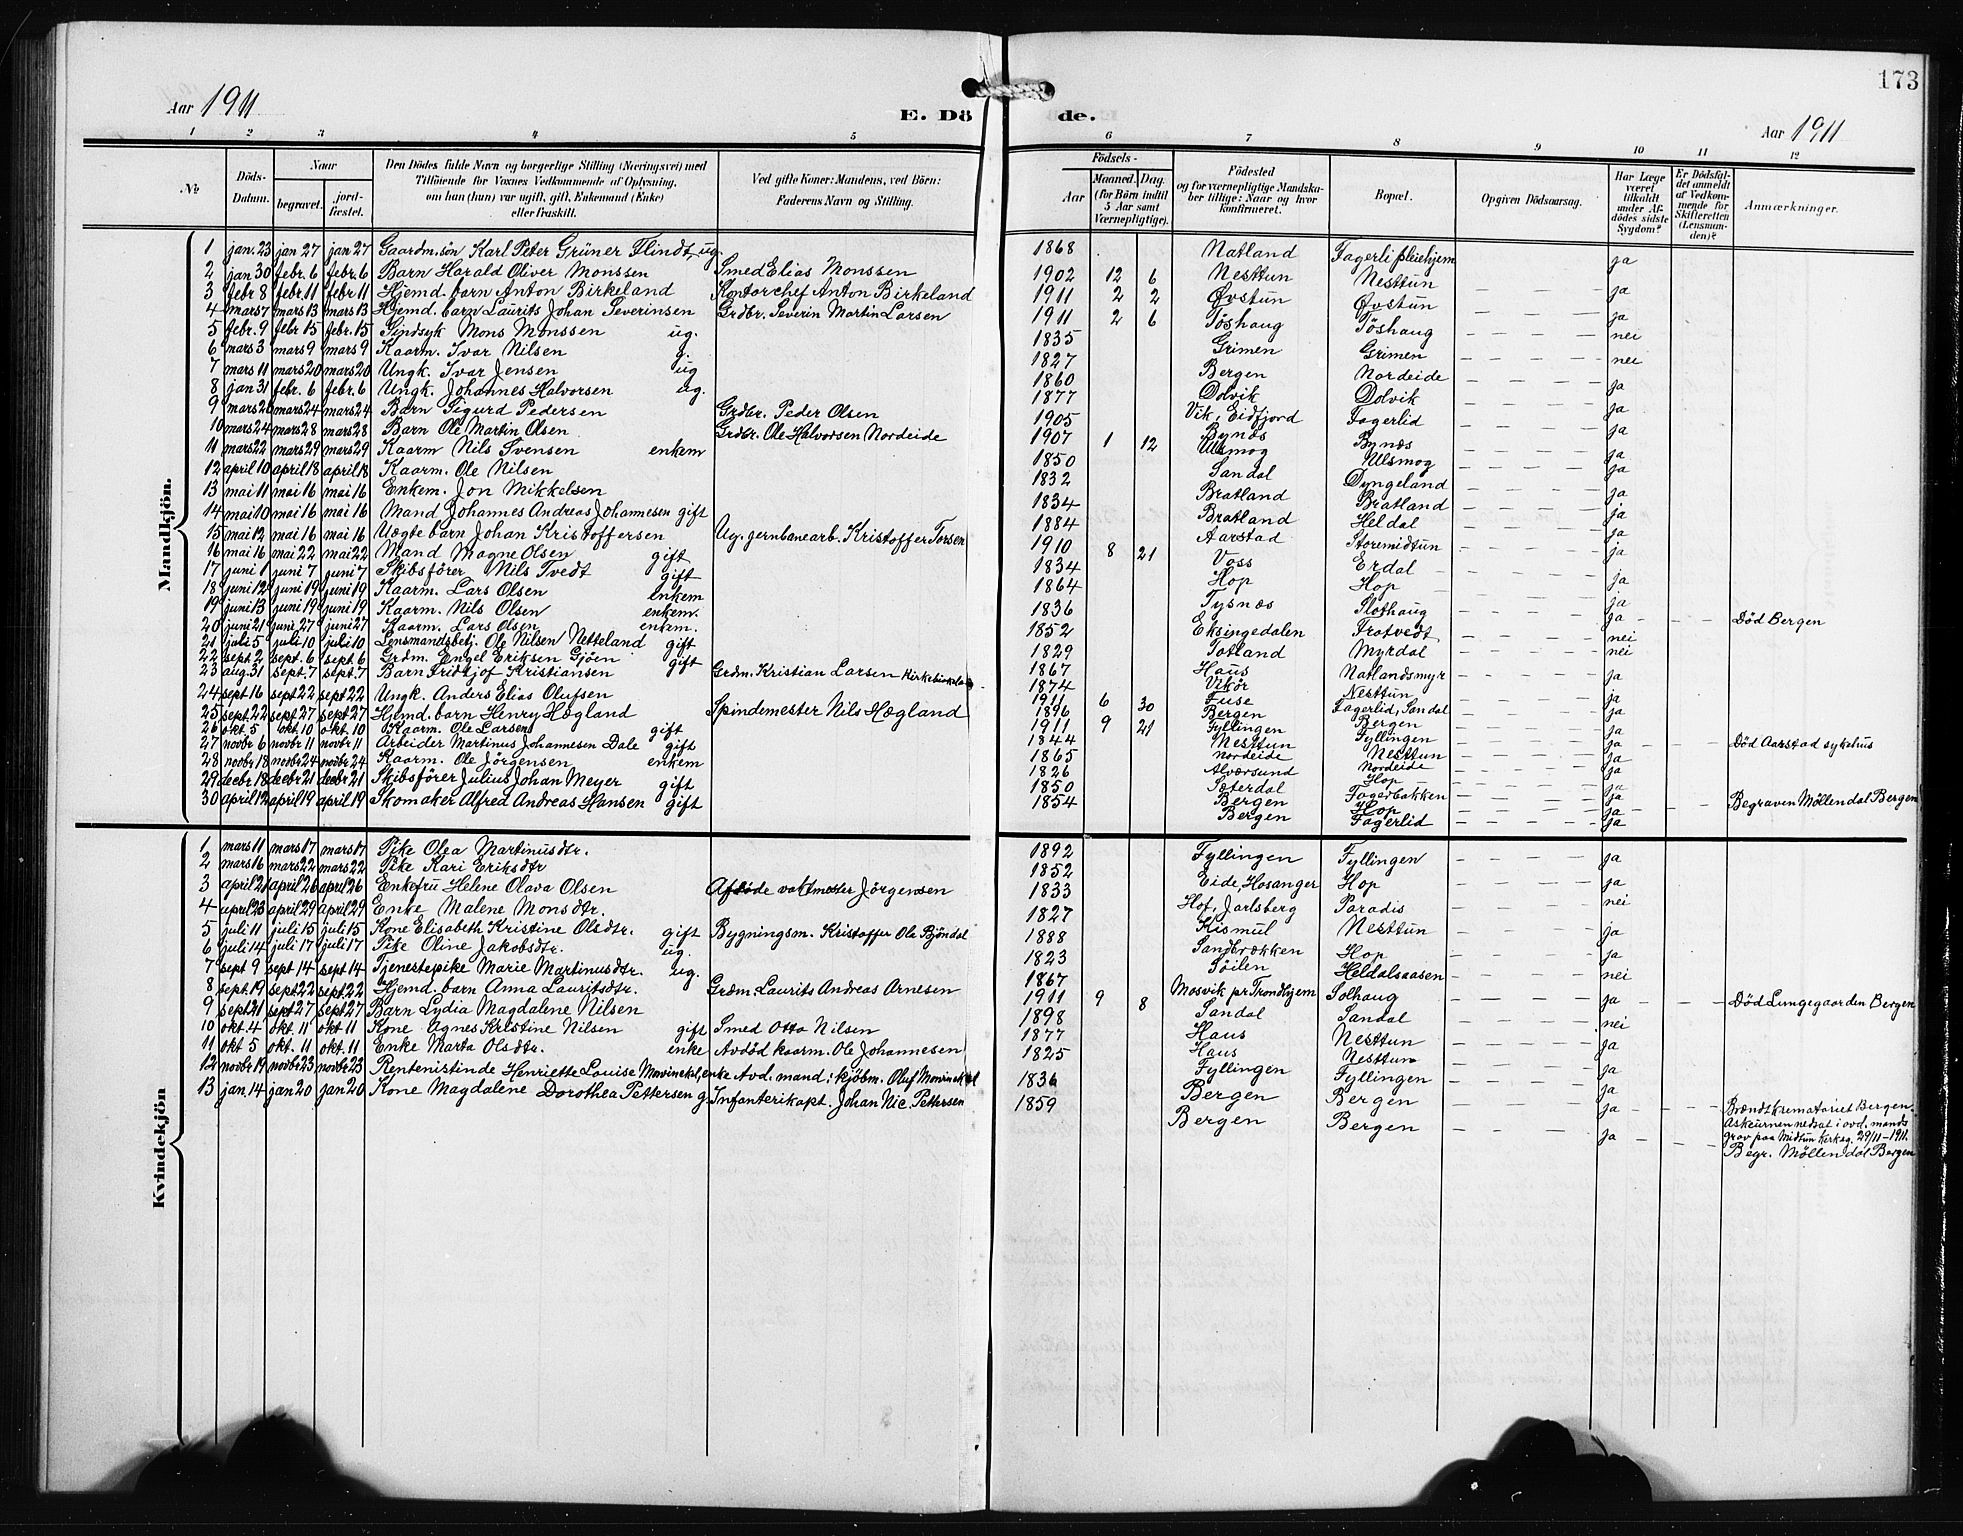 173
Aar 1911
E. Dö de.
Aar 1911
1 2 3 4 5 6 7 8 9 10 11 12
No
Döds-Datum.
Naar
begravet. jord-fæstet.
Den Dödes fulde Navn og borgerlige Stilling (Næringsvei) med
Tilföiende for Voxnes Vedkommende af Oplysning,
om han (hun) var ugift, gift, Enkemand (Enke)
eller fraskilt.
Ved gifte Koner: Mandens, ved Börn:
Faderens Navn og Stilling.
Födsels-
Aar
Maaned. Dag.
(for Börn indtil
5 Aar samt
Værnepligtige).
Födested
og for værnepligtige Mandska-
ber tillige: Naar og hvor
konfirmeret.
Bopæl.
Opgiven Dödsaarsag.
Har Læge
været
tilkaldt
under Af-
dödes sidste
Sygdom?
Er Dödsfal-
det anmeldt
af Vedkom-
mende for
Skifteretten
(Lensman-
den)?
Anmærkninger.
Mandkjön.
1 jan. 23 jan 27 jan 27 Gaardm.sön Karl Peter Grüner Flindt, ug. 1868 Natland Fagerli pleiehjem ja
2 jan 30 febr. 6 febr. 6 Barn Harald Oliver Monssen Smed Elias Monssen 1902 12 6 Nesttun Nesttun — — — — ja
3 febr 8 febr. 11 febr 11 Hjemd. barn Anton Birkeland Kontorchef Anton Birkeland 1911 2 2 Øvstun Øvstun — — — — ja
4 mars 7 mars 13 mars 13 Hjemd. barn Laurits Johan Severinsen Grdbr. Severin Martin Larsen 1911 2 6 Töshaug Töshaug — — — — nei
5 febr. 9 febr 15 febr. 15 Sindsyk Mons Monssen ug. 1835 Grimen Grimen — — — — nei
6 mars 3 mars 9 mars 9 Kaarm. Ivar Nilsen g. 1827 Bergen Nordeide — — — — ja
7 mars 11 mars 20 mars 20 Ungk. Ivar Jensen ug 1860 Dolvik Dolvik — — — — ja
8 jan 31 febr. 6 febr. 6 Ungk. Johannes Halvorsen ug. 1877 Vik, Eidfjord Fagerlid — — — — ja
9 mars 20 mars 24 mars 24 Barn Sigurd Pedersen Grdbr. Peder Olsen 1905 Bynæs Bynæs — — — — ja
10 mars 24 mars 28 mars 28 Barn Ole Martin Olsen Grdbr. Ole Halvorsen Nordeide 1907 1 12 Ulsmog Ulsmog — — — — ja
11 mars 22 mars 29 mars 29 Kaarm Nils Svensen enkem 1850 Sandal Dyngeland — — — — ja
12 april 10 april 18 april 18 Kaarm. Ole Nilsen 1832 Bratland Bratland — — — — ja
13 mai 11 mai 16 mai 16 Enkem. Jon Mikkelsen 1834 Bratland Heldal — — — — ja
14 mai 10 mai 16 mai 16 Mand Johannes Andreas Johannesen gift 1884 Aarstad Storemidtun — — — — ja
15 mai 12 mai 16 mai 16 Uægte barn Johan Kristoffersen Ug. jernbanearb. Kristoffer Torsen 1910 8 21 Voss Erdal — — — — ja
16 mai 16 mai 22 mai 22 Mand Magne Olsen gift 1834 Hop Hop — — — — ja
17 juni 1 juni 7 juni 7 Skibsförer Nils Tvedt gift 1864 Tysnæs Slothaug — — — — ja — — — Död Bergen
18 juni 12 juni 19 juni 19 Kaarm. Lars Olsen enkem 1836 Eksingedalen Trotvedt — — — — nei
19 juni 13 juni 19 juni 19 Kaarm. Nils Olsen enkem. 1852 Totland Myrdal — — — — nei
20 juni 21 juni 27 juni 27 Kaarm. Lars Olsen enkem. 1829 Haus Natlandsmyr — — — — ja
21 juli 5 juli 10 juli 10 Lensmandsbetj. Ole Nilsen Netteland gift 1867 Vikör Nesttun — — — — ja
22 sept 2 sept. 6 sept. 6 Grdm. Engel Eriksen Gjöen gift 1874 Fuse Fagerlid, Sandal — — — — ja
23 aug. 31 sept. 7 sept. 7 Barn Fridtjof Kristiansen Grdm. Kristian Larsen Kirkebirkeland 1911 6 30 Bergen Bergen — — — — ja
24 sept 16 sept 22 sept 22 Ungk. Anders Elias Olufsen 1896 Fyllingen Fyllingen — — — — ja — — — Död Aarstad sykehus
25 sept. 22 sept. 27 sept. 27 Hjemd. barn Henry Høgland Spindemester Nils Høgland 1911 9 21 Nesttun Nesttun — — — — ja
26 okt. 5 okt. 10 okt. 10 Kaarm. Ole Larsen gift 1844 Nordeide Nordeide — — — — ja
27 novbr 6 novbr 11 novbr 11 Arbeider Martinus Johannesen Dale gift 1865 Alversund Hop — — — — ja
28 novbr 18 novbr 24 novbr 24 Kaarm. Ole Jörgensen enkem 1826 Sæterdal Fagerbakken — — — — ja — — — Begraven Möllendal Bergen
29 decbr 18 decbr 21 decbr 21 Skibsförer Julius Johan Meyer gift 1850 Bergen Hop — — — — ja
30 april 12 april 19 april 19 Skomaker Alfred Andreas Hansen gift 1854 Bergen Fagerlid — — — — ja
Kvindekjön
1 mars 11 mars 17 mars 17 Pike Olea Martinusdtr. 1892 Fyllingen Fyllingen — — — — ja
2 mars 16 mars 22 mars 22 Pike Kari Eriksdtr 1852 Eide, Hosanger Hop — — — — ja
3 april 21 april 26 april 26 Enkefru Helene Olava Olsen Afdöde vaktmester Jörgensen 1833 Hof, Jarlsberg Paradis — — — — nei
4 april 23 april 29 april 29 Enke Malene Monsdtr. 1827 Kismul Nesttun — — — — ja
5 juli 11 juli 15 juli 15 Kone Elisabeth Kristine Olsdtr. gift Bygningsm. Kristoffer Ole Bjöndal 1888 Sandbrækken Hop — — — — ja
6 juli 14 juli 17 juli 17 Pike Oline Jakobsdtr. ug. 1823 Söilen Heldalsaasen — — — — nei
7 sept 9 sept 14 sept 14 Tjenestepike Marie Martinusdtr. ug. 1867 Mosvik pr Trondhjem Solhaug — — — — ja — — — Död Lungegaarden Bergen
8 sept. 19 sept 22 sept. 22 Hjemd. barn Anna Lauritsdtr. Grdm. Laurits Andreas Arnesen 1911 9 8 Sandal Sandal — — — — nei
9 sept 21 sept 27 sept 27 Barn Lydia Magdalene Nilsen 1898 Haus Nesttun — — — — ja
10 okt. 4 okt. 11 okt. 11 Kone Agnes Kristine Nilsen gift Smed Otto Nilsen 1877 Haus Nesttun — — — — ja
11 okt 5 okt. 11 okt. 11 Enke Marta Olsdtr. enke Avdöd kaarm. Ole Johannesen 1825 Fyllingen Fyllingen — — — — ja
12 novbr 19 novbr 23 novbr 23 Rentenistinde Henriette Louise Mowinckel, enke Avd. mand: kjöbm. Oluf Mowinckel 1836 Bergen Bergen — — — — ja — — — — Brændt krematoriet Bergen.
Askeurnen nedsat i avd. mands
grav paa Midtun kirkeg. 29/11-1911.
13 jan. 14 jan 20 jan 20 Kone Magdalene Dorothea Pettersen g. Infanterikapt. Johan Nic. Pettersen 1859 Bergen Bergen — — — — ja — — — — Begr. Möllendal Bergen